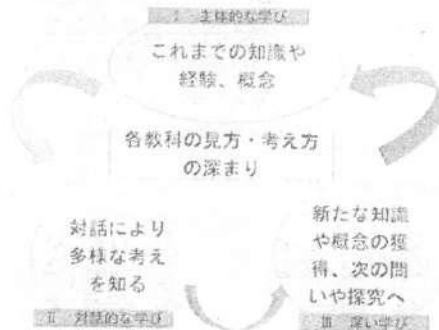 Ⅰ 主体的な学び
これまでの知識や
経験、概念
各教科の見方・考え方
の深まり
対話により
多様な考え
を知る
Ⅱ 対話的な学び
新たな知識
や概念の獲
得、次の問
いや探究へ
Ⅲ 深い学び